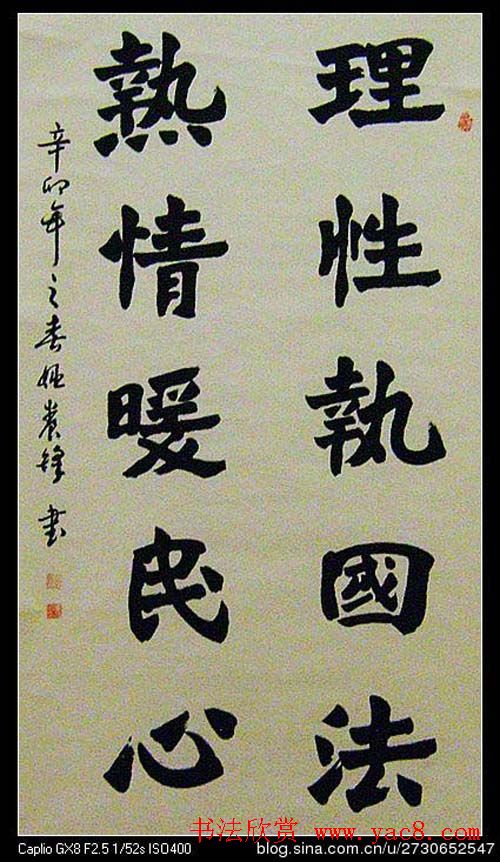 理性執國法
熱情暖民心
辛卯年之春姚裳鋒書
书法欣赏 www.yac8.com
Caplio GX8 F2.5 1/52s ISO400
blog.sina.com.cn/u/2730652547